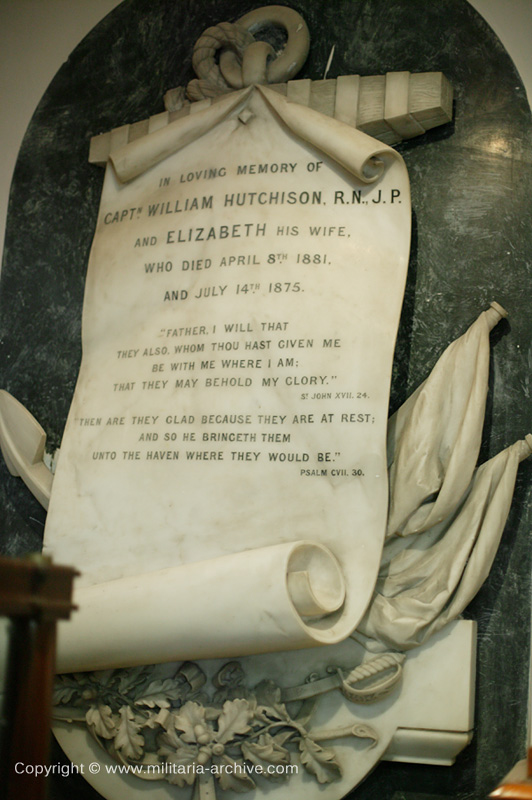 IN LOVING MEMORY OF
CAPTN WILLIAM HUTCHISON, R.N., J.P.
AND ELIZABETH HIS WIFE,
WHO DIED APRIL 8TH 1881,
AND JULY 14TH 1875.
"FATHER, I WILL THAT
THEY ALSO, WHOM THOU HAST GIVEN ME
BE WITH ME WHERE I AM;
THAT THEY MAY BEHOLD MY GLORY."
ST JOHN XVII. 24.
"THEN ARE THEY GLAD BECAUSE THEY ARE AT REST;
AND SO HE BRINGETH THEM
UNTO THE HAVEN WHERE THEY WOULD BE."
PSALM CVII. 30.
Copyright © www.militaria-archive.com